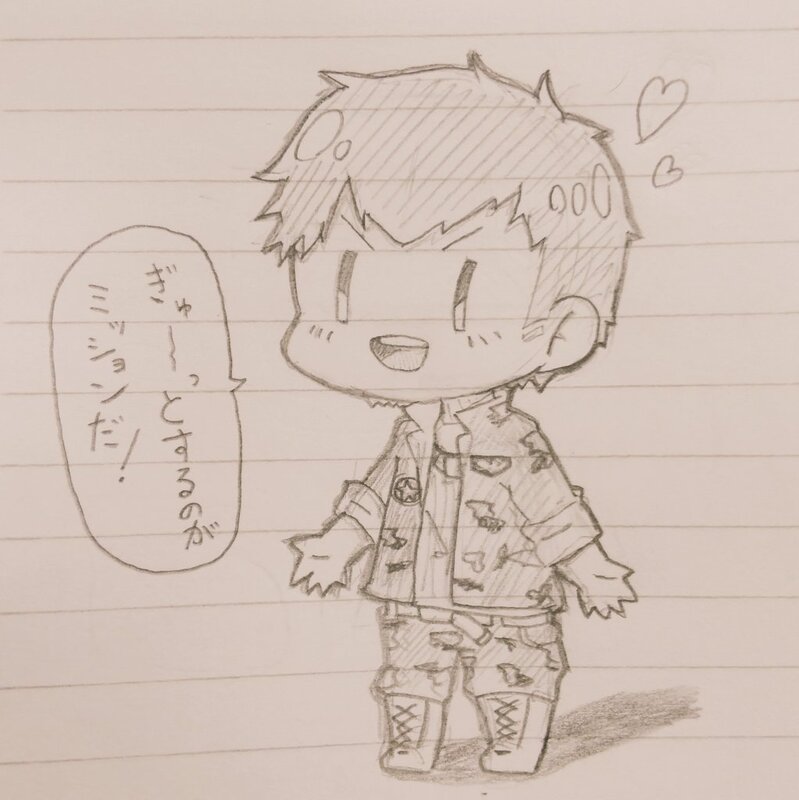 ぎゅ〜〜っとするのが
ミッションだ!